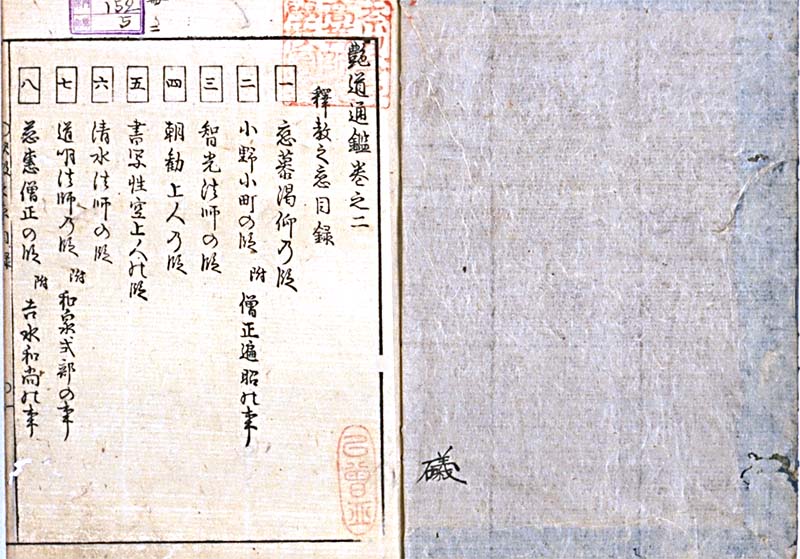 艶道通鑑巻之二
釋教之恋目録
一 恋慕渇仰乃段
二 小野小町の段 附 僧正遍昭の事
三 智光法師の段
四 朝勧上人乃段
五 書写性空上人の段
六 清水法師の段
七 道命法師乃段 附 和泉式部の事
八 慈恵僧正の段 附 吉水和尚の事
礒
159
5